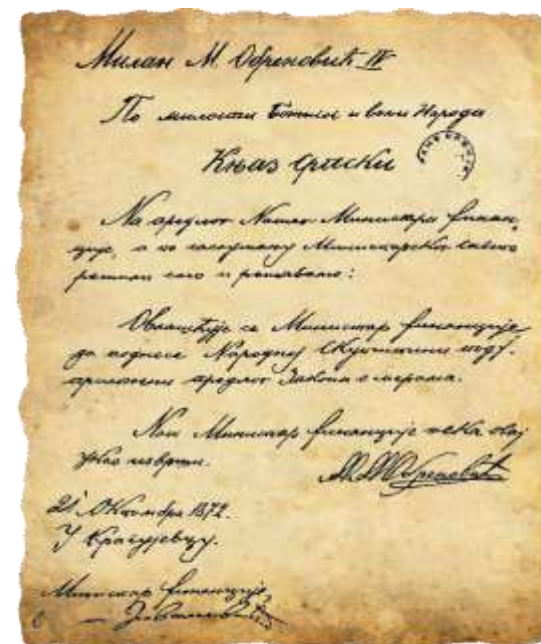 Милан М. Обреновић IV
По милости Божиој и вољи Народа
Књаз српски
На предлог Нашег Министра финан-
ције, а по саслушању Министарског савета
решили смо и решавамо:
Овлашћује се Министар финанције
да поднесе Народној Скупштини под ʏ.
приложени предлог Закона о мерама.
Наш Министар финанције нека овај
указ изврши.
М. М. Обреновић
21 Октомбра 1872.
У Крагујевцу.
Министар финанције,